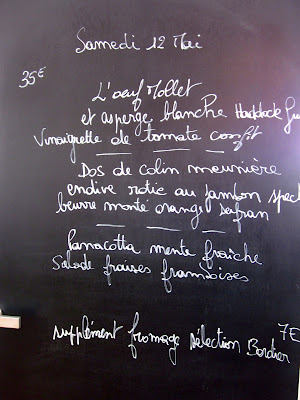 Samedi 12 Mai
35E
L'oeuf Mollet
et asperge blanche Haddock
Vinaigrette de tomate confit
Dos de colin meunière
endive rotie au jambon spec
beurre monté orange safran
Panacotta mente fraîche
Salade fraises framboises
supplément fromage sélection Bordier
7E